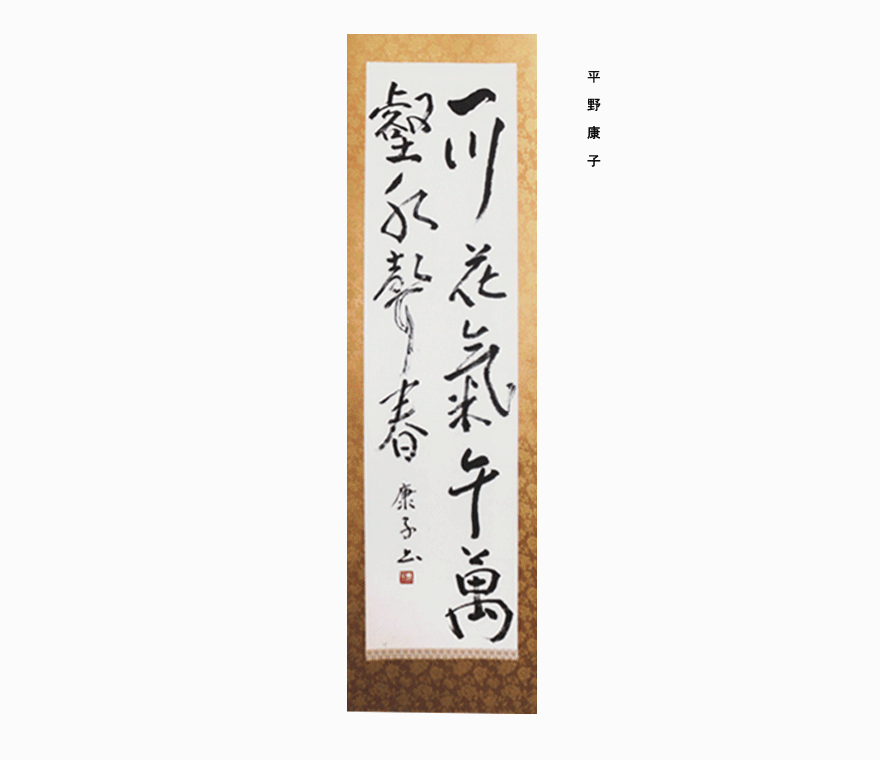 一川花氣午萬
壑水聲春
康子書
平野康子